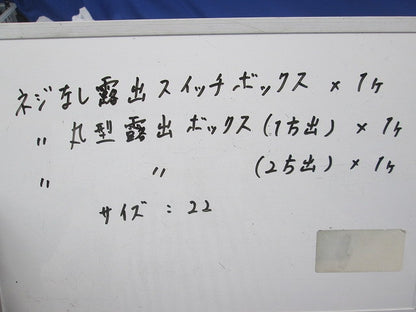 ネジなし露出スイッチボックス × 1ヶ
〃 丸型露出ボックス(1方出) × 1ヶ
〃 〃 (2方出) × 1ヶ
サイズ : 22